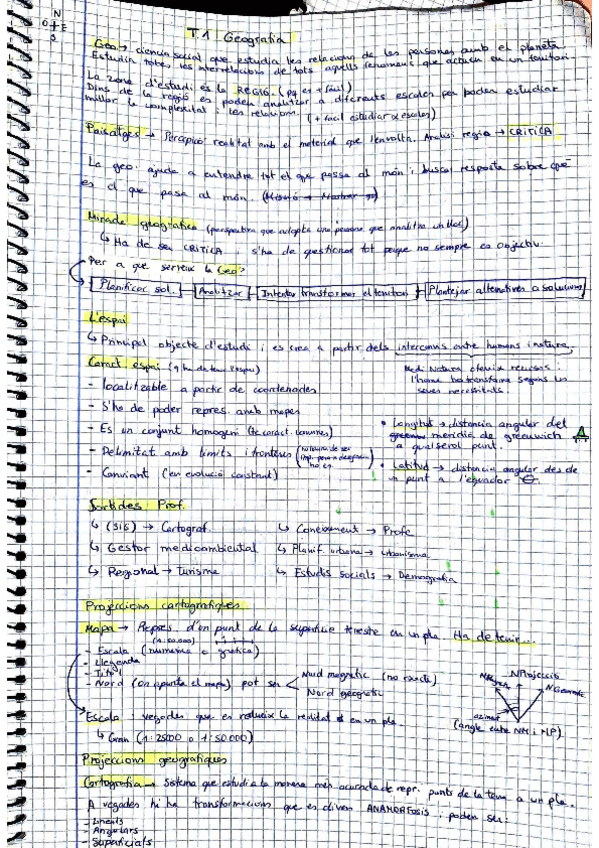 N
O E
S
T.1 Geografia
Geo → ciencia social que estudia les relacions de les persones amb el planeta.
Estudia totes les interrelacions de tots aquells fenomens que actuen en un territori.
La zona d'estudi és la REGIÓ. (pq es + fàcil)
Dins de la regió es poden analitzar a diferents escales per poder estudiar
millor la complexitat i les relacions. (+ fàcil estudiar escales)
Paisatges → Percepció realitat amb el material que l'envolta. Anàlisi regió → CRÍTICA
La geo. ajuda a entendre tot el que passa al món i buscar resposta sobre què
es el que passa al món.
Mirada geogràfica (perspectiva que adopta una persona que analitza un lloc)
↳ Ha de ser CRÍTICA i s'ha de qüestionar tot perque no sempre es objectiu.
Per a que serveix la Geo?
Planificar sol. Analitzar Intentar transformar el territori Plantejar alternatives o solucions
L'espai
↳ Principal objecte d'estudi i es crea a partir dels intercanvis entre humans i natura.
Caract. espai (q ha de tenir l'espai)
Medi Natura ofereix recursos i
l'home ho transforma segons les
seves necessitats.
- localitzable a partir de coordenades
- S'ha de poder repres. amb mapes
- Es un conjunt homogeni (te caract. comunes)
- Delimitat amb límits i fronteres
- Canviant (en evolució constant)
• Longitud → distancia angular del
meridià de greenwich
a qualsevol punt.
• Latitud → distancia angular des de
un punt a l'equador
Sortides Prof.
↳ (SIG) → Cartograf. ↳ Coneixement → Profe
↳ Gestor mediambiental ↳ Planif. urbana → urbanisme
↳ Regional → Turisme ↳ Estudis socials → Demografia
Projeccions cartogràfiques
Mapa → Repres. d'un punt de la superfície terrestre en un pla. Ha de tenir...
- Escala (numèrica o gràfica)
- Llegenda
- Títol
- Nord (on apunta el mapa) pot ser
Nord magnètic (no exacte)
Nord geogràfic
NProjecció
N Geogràfic
azimut
(angle entre NM i NP)
Escala: vegades que es redueix la realitat en un pla.
↳ Gran (1:25000 o 1:50.000)
Projeccions geogràfiques
Cartografia → Sistema que estudia la manera més acurada de repr. punts de la terra a un pla.
A vegades hi ha transformacions que es diuen ANAMORFOSIS i poden ser:
- Lineals
- Angulars
- Superficials